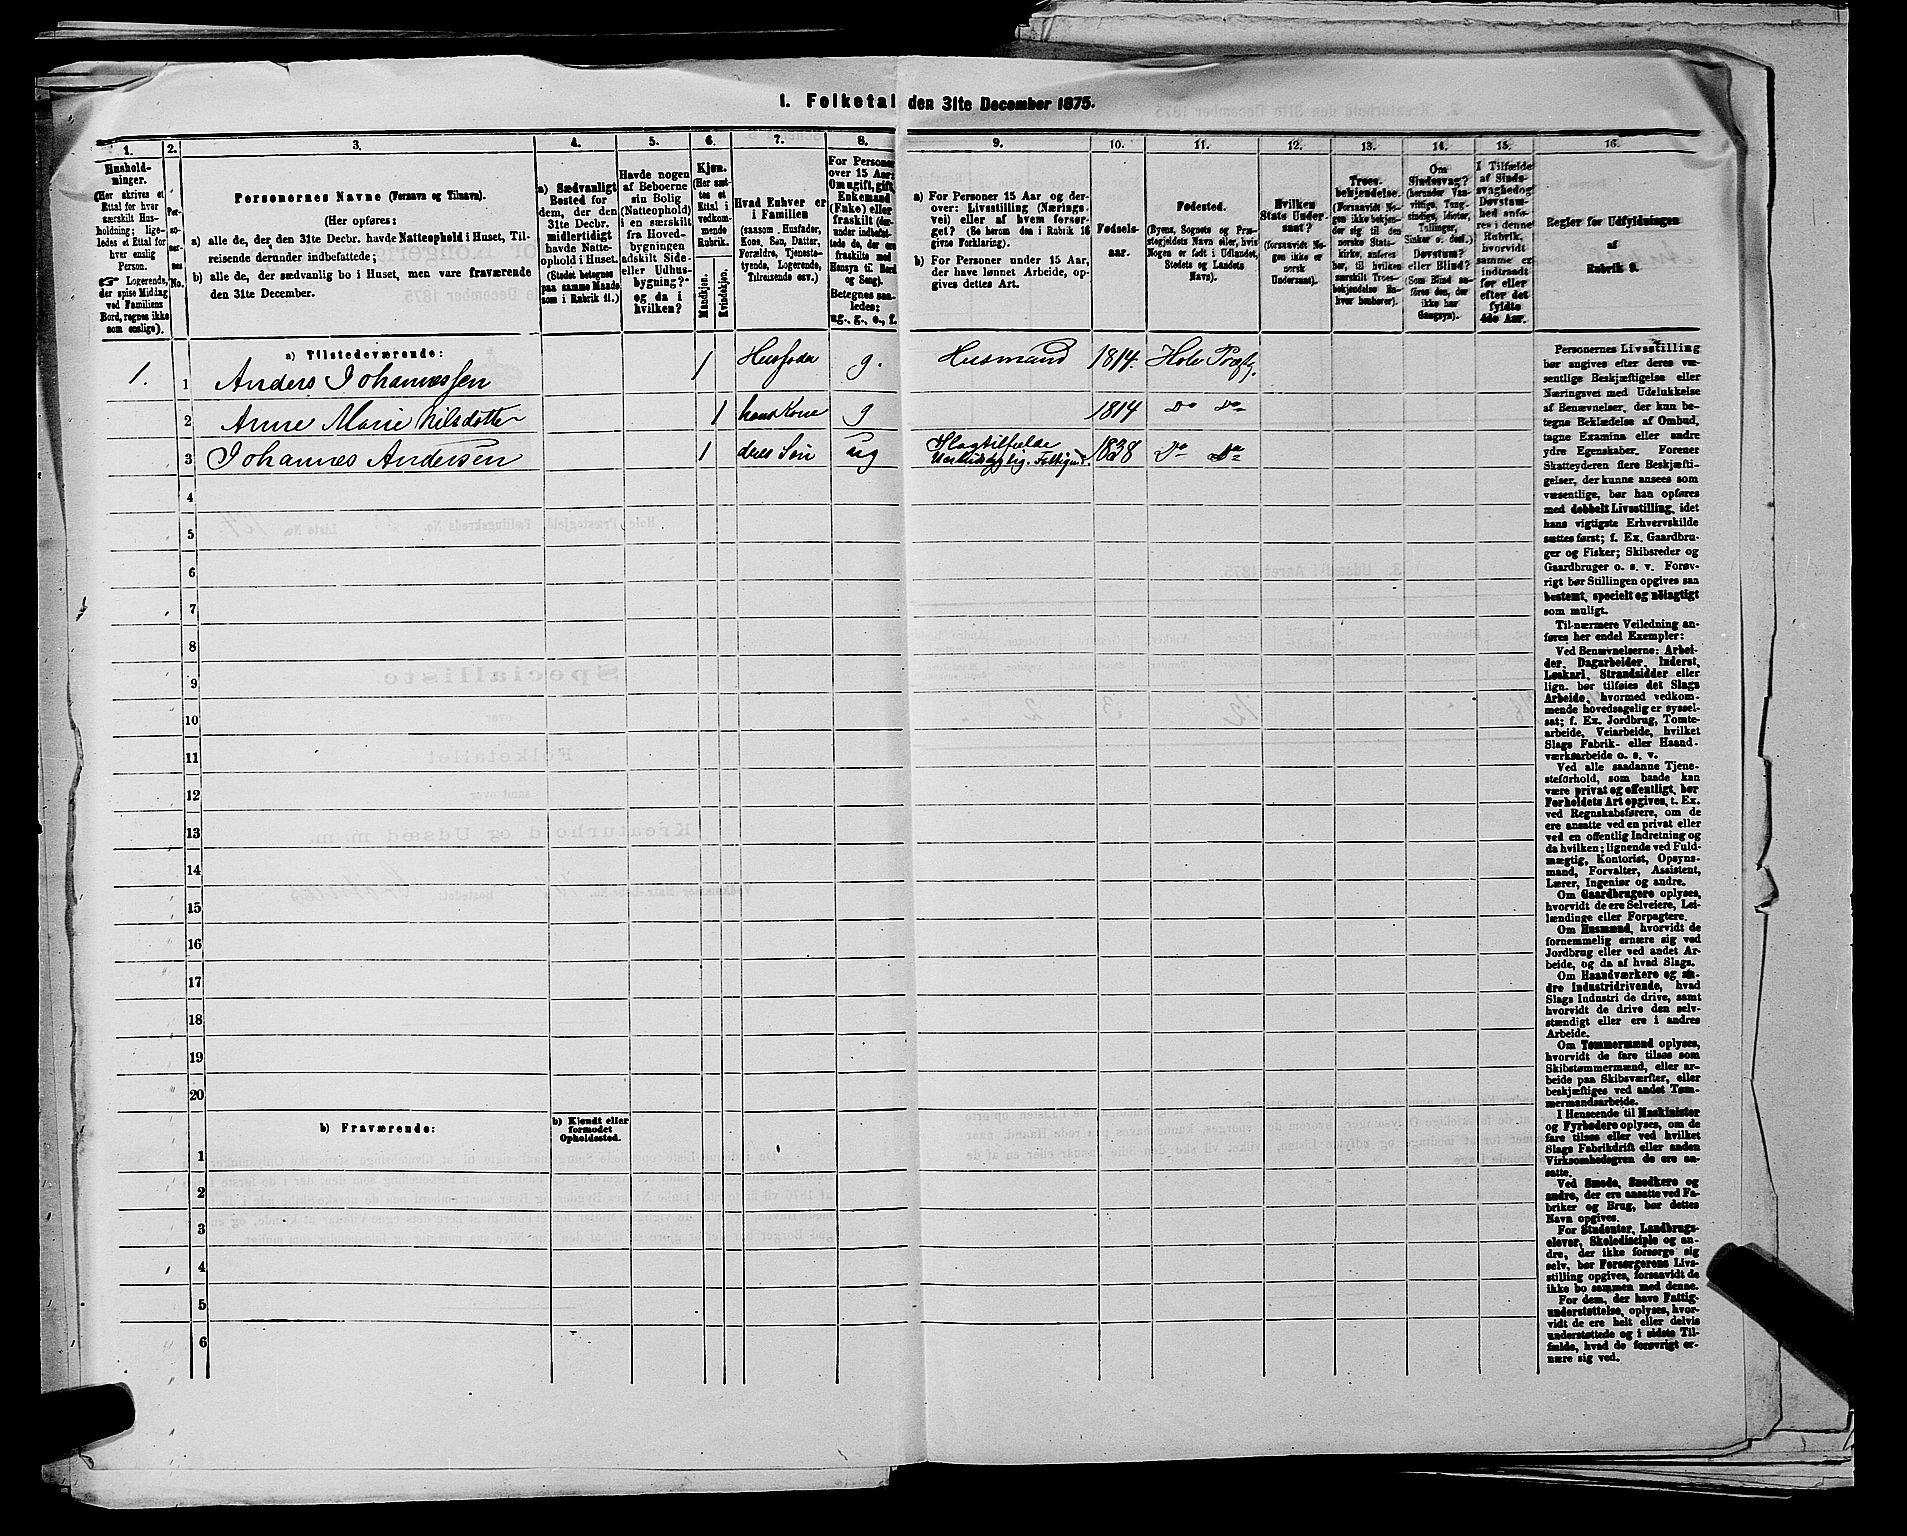 1. Folketal den 31te December 1875.
1. 2. 3. 4. 5. 6. 7. 8. 9. 10. 11. 12. 13. 14. 15. 16.
Hushold-
ninger.
(Her skrives et
Ettal for hver
særskilt Hus-
holdning; lige-
ledes et Ettal for
hver enslig
Person.
☞ Logerende,
der spise Middag
ved Familiens
Bord, regnes ikke
som enslige).
Per-
so-
ner-
nes
No.
Personernes Navne (Fornavn og Tilnavn).
(Her opføres:
a) alle de, der den 31te Decbr. havde Natteophold i Huset, Til-
reisende derunder indbefattede;
b) alle de, der sædvanlig bo i Huset, men vare fraværende
den 31te December.
a) Sædvanligt
Bosted for
dem, der den
31te Decbr.
midlertidigt
havde Natte-
ophold i Huset.
(Stedet betegnes
paa samme Maade
som i Rubrik 11.)
Havde nogen
af Beboerne
sin Bolig
(Natteophold)
i en særskilt
fra Hoved-
bygningen
adskilt Side-
eller Udhus-
bygning?
og da i
hvilken?
Kjøn.
(Her sæt-
tes et
Ettal i
vedkom-
mende
Rubrik.
Mandkjøn.
Kvindekjøn.
Hvad Enhver er
i Familien
(saasom Husfader,
Kone, Søn, Datter,
Forældre, Tjeneste-
tyende, Logerende,
Tilreisende osv.)
For Personer
over 15 Aar:
Om ugift, gift,
Enkemand
(Enke) eller
fraskilt (der-
under indbefat-
tede de, der ere
fraskilte med
Hensyn til Bord
og Seng).
Betegnes saa-
ledes:
ug., g., e., f.
a) For Personer 15 Aar og der-
over: Livsstilling (Nærings-
vei) eller af hvem forsør-
get? (Se herom den i Rubrik 16
givne Forklaring).
b) For Personer under 15 Aar,
der have lønnet Arbeide, op-
gives dettes Art.
Fødsels-
aar.
Fødested.
(Byens, Sognets og Præ-
stegjeldets Navn eller, hvis
Nogen er født i Udlandet,
Stedets og Landets
Navn).
Hvilken
Stats Under-
saat?
(forsaavidt No-
gen ikke er
norsk
Undersaat).
Troes-
bekjendelse.
(Forsaavidt No-
gen ikke bekjen-
der sig til den
norske Stats-
kirke, anføres
her, til hvilken
særskilt Troes-
bekjendelse En-
hver henhører).
Om
Sindssvag?
(herunder Van-
vittige, Tung-
sindige, Idioter,
Tullinger,
Sinker o. desl.)
Døvstum?
eller Blind?
(Som Blind an-
føres den, der
ikke har
Gangsyn).
I Tilfælde
af Sinds-
svaghed og
Døvstum-
hed anfø-
res i denne
Rubrik,
hvorvidt
samme er
indtraadt
før eller
efter det
fyldte
4de Aar.
Regler for Udfyldningen
af
Rubrik 9.
a) Tilstedeværende:
1. 1 Anders Johannessen 1 Husfader g. Husmand 1814. Hole Præstg.
2 Anne Marie Nilsdatter 1 hans Kone g 1814 Do Do
3 Johannes Andersen 1 deres Søn ug Slagtilfælde 1838 Do Do
4
5
6
7
8
9
10
11
12
13
14
15
16
17
18
19
20
b) Fraværende:
b) Kjendt eller
formodet
Opholdssted.
1
2
3
4
5
6
Personernes Livsstilling
bør angives efter deres væ-
sentlige Beskjæftigelse eller
Næringsvei med Udelukkelse
af Benævnelser, der kun be-
tegne Beklædelse af Ombud,
tagne Examina eller andre
ydre Egenskaber. Forener
Skatteyderen flere Beskjæfti-
gelser, der kunne ansees som
væsentlige, bør han opføres
med dobbelt Livsstilling, idet
hans vigtigste Erhvervskilde
sættes først; f. Ex. Gaardbru-
ger og Fisker; Skibsreder og
Gaardbruger o. s. v. Forøv-
rigt bør Stillingen opgives saa
bestemt, specielt og nøiagtigt
som muligt.
Til nærmere Veiledning an-
føres her endel Exempler:
Ved Benævnelserne: Arbei-
der, Dagarbeider, Inderst,
Løskarl, Strandsidder eller
lign. bør tilføies det Slags
Arbeide, hvormed vedkom-
mende hovedsagelig er syssel-
sat; f. Ex. Jordbrug, Tomte-
arbeide, Veiarbeide, hvilket
Slags Fabrik- eller Haand-
værksarbeide o. s. v.
Ved alle saadanne Tjene-
steforhold, som baade kan
være privat og offentligt, bør
Forholdets Art opgives, t. Ex.
ved Regnskabsførere, om de
ere ansatte ved en privat eller
ved en offentlig Indretning og
da hvilken; lignende ved Fuld-
mægtig, Kontorist, Opsyns-
mand, Forvalter, Assistent,
Lærer, Ingeniør og andre.
Om Gaardbrugere oplyses,
hvorvidt de ere Selveiere, Lei-
lændinge eller Forpagtere.
Om Husmænd, hvorvidt de
fornemmelig ernære sig ved
Jordbrug eller ved andet Ar-
beide, og da af hvad Slags.
Om Haandværkere og an-
dre Industridrivende, hvad
Slags Industri de drive, samt
hvorvidt de drive den selv-
stændigt eller ere i andres
Arbeide.
Om Tømmermænd oplyses,
hvorvidt de fare tilsøs som
Skibstømmermænd, eller ar-
beide paa Skibsværfter, eller
beskjæftiges ved andet Tøm-
mermandsarbeide.
I Henseende til Maskinister
og Fyrbødere oplyses, om de
fare tilsøs eller ved hvilket
Slags Fabrikdrift eller anden
Virksomhedsgren de ere an-
satte.
Ved Smede, Snedkere og
andre, der ere ansatte ved Fa-
briker og Brug, bør dettes
Navn opgives.
For Studenter, Landbrugs-
elever, Skoledisciple og an-
dre, der ikke forsørge sig
selv, bør Forsørgerens Livs-
stilling opgives, forsaavidt de
ikke bo sammen med denne.
For dem, der have Fattig-
understøttelse, oplyses, hvor-
vidt de ere helt eller delvis
understøttede og i sidste Til-
fælde, hvad de forøvrigt er-
nære sig ved.